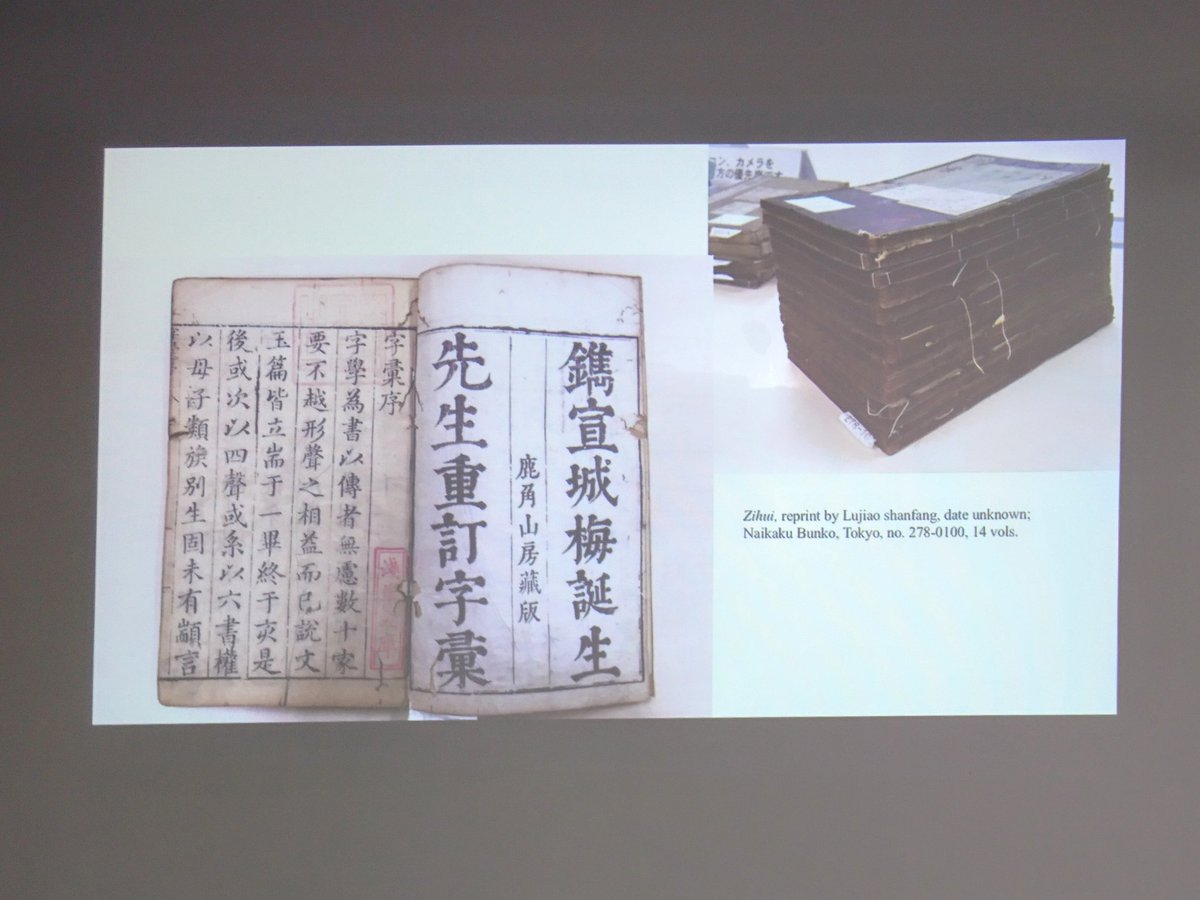 鐫宣城梅誕生
鹿角山房藏版
先生重訂字彙
字彙序
字學為書以傳者無慮數十家
要不越形聲之相益而已說文
玉篇皆立耑于一畢終于亥是
後或次以四聲或系以六書權
以母子類族別生固未有顓言
ン、カメラを
方の優先席です
Zihui, reprint by Lujiao shanfang, date unknown;
Naikaku Bunko, Tokyo, no. 278-0100, 14 vols.